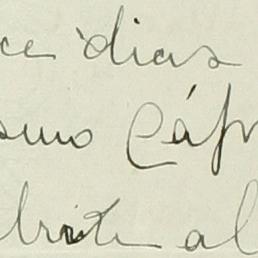 ce dias
smo Cáp
brite al